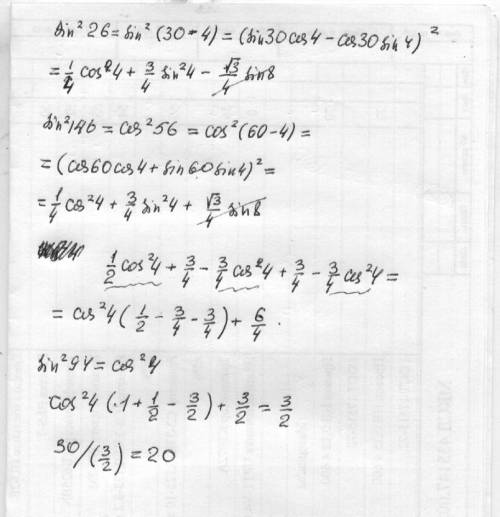 sin²26 = sin²(30-4) = (sin30cos4 - cos30sin4)²
= 1/4 cos²4 + 3/4 sin²4 - √3/4 sin8
sin²146 = cos²56 = cos²(60-4) =
= (cos60cos4 + sin60sin4)² =
= 1/4 cos²4 + 3/4 sin²4 + √3/4 sin8
1/2 cos²4 + 3/4 - 3/4 cos²4 + 3/4 - 3/4 cos²4 =
= cos²4 (1/2 - 3/4 - 3/4) + 6/4.
sin²94 = cos²4
cos²4 (1 + 1/2 - 3/2) + 3/2 = 3/2
30/(3/2) = 20